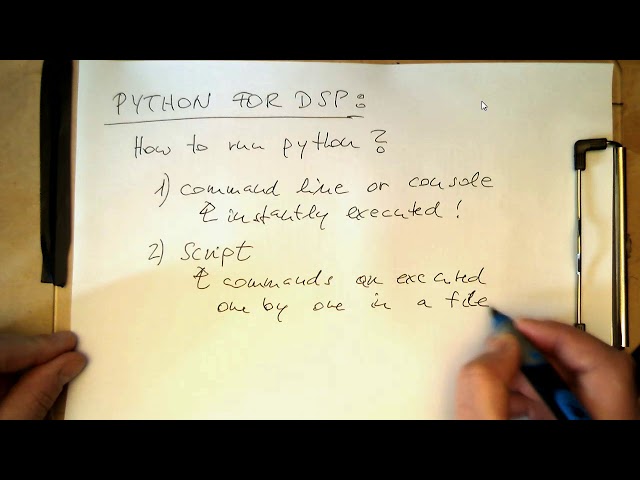 PYTHON FOR DSP:
How to run python?
1) command line or console
↳ instantly executed!
2) script
↳ commands an executed
one by one in a file